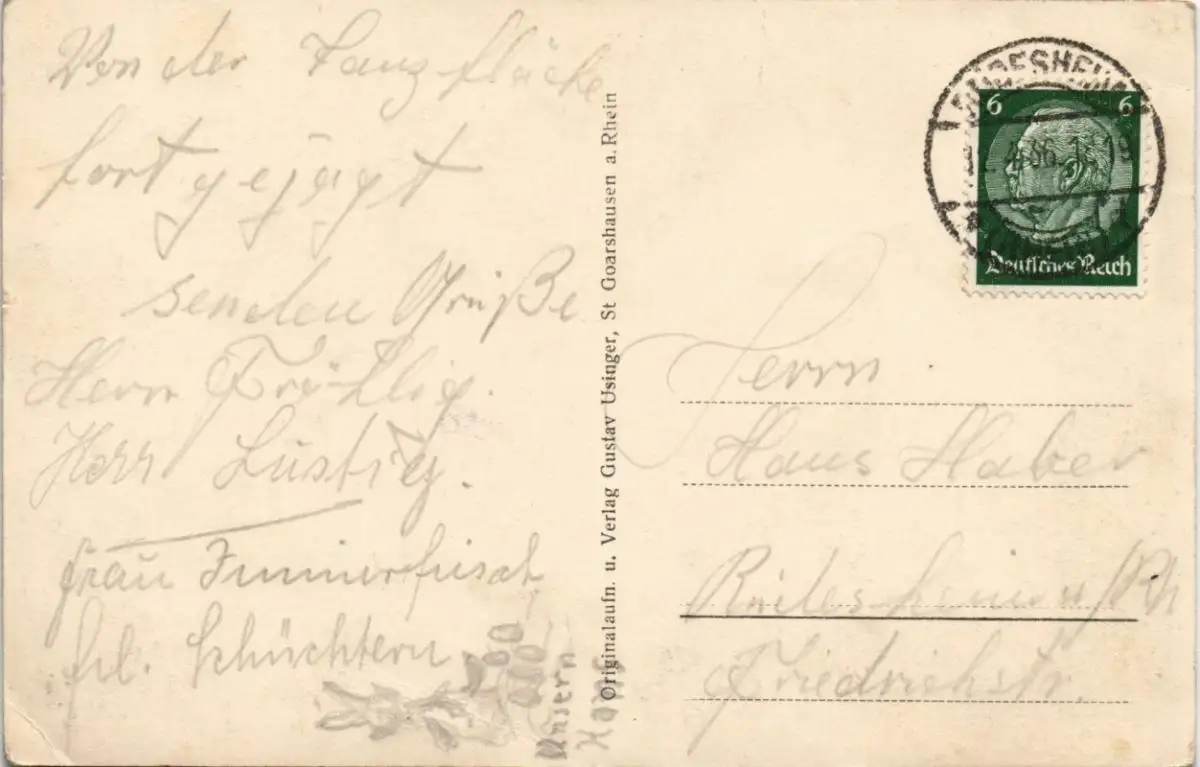 Von der Tanzfläche
fortgejagt
senden Grüße
Herrn Fröhlig.
Herr Lustig.
Frau Immerfrisch
Frl. Schüchtern
Unsern
Hans
Originalaufn. u. Verlag Gustav Usinger, St Goarshausen a. Rhein
6 6
Deutsches Reich
Herrn
Hans Haber
Rüdesheim a/Rh
Friedrichstr.